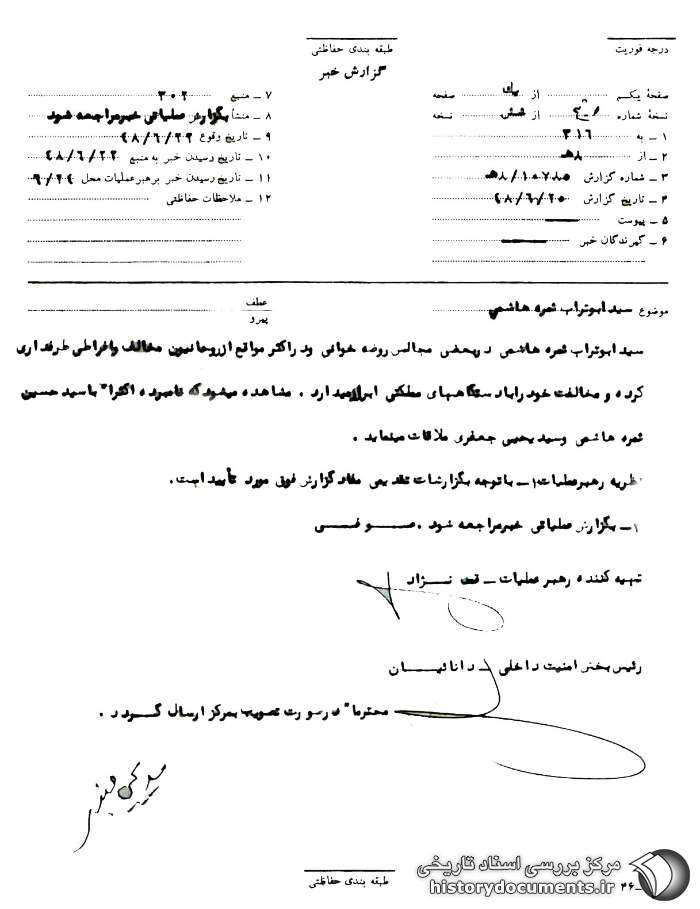 درجه فوریت
طبقه بندی حفاظتی
گزارش خبر
صفحهٔ یکم از یک صفحه
نسخهٔ شماره از شش نسخه
۱ ـ به ۳۱۶
۲ ـ از ۸هـ
۳ ـ شماره گزارش ۸/۱۰۷۸۵هـ
۴ ـ تاریخ گزارش ۴۸/۶/۲۵
۵ ـ پیوست
۶ ـ گیرندگان خبر
۷ ـ منبع ۳۰۲
۸ ـ منشأ بگزارش عملیاتی خبر مراجعه شود
۹ ـ تاریخ وقوع ۴۸/۶/۲۲
۱۰ ـ تاریخ رسیدن خبر به منبع ۴۸/۶/۲۲
۱۱ ـ تاریخ رسیدن خبر برهبر عملیات محل ۶/۲۴
۱۲ ـ ملاحظات حفاظتی
موضوع سید ابوتراب ثمره هاشمی
عطف
پیرو
سید ابوتراب ثمره هاشمی در بعضی مجالس روضه خوانی و در اکثر مواقع از روحانیون مخالف و افراطی طرفداری
کرده و مخالفت خود را با دستگاههای مملکتی ابراز میدارد . مشاهده میشود که نامبرده اکثرا" با سید حسین
ثمره هاشمی و سید یحیی جعفری ملاقات مینماید .
نظریه رهبر عملیات ۱ـ با توجه بگزارشات تقدیمی مفاد گزارش فوق مورد تأیید است.
۱ـ بگزارش عملیاتی خبر مراجعه شود . صوفی
تهیه کننده رهبر عملیات ـ نژاد
رئیس بخش امنیت داخلی ـ دانائیان
محترما" در صورت تصویب بمرکز ارسال گردد .
طبقه بندی حفاظتی
۴۶ـ
مرکز بررسی اسناد تاریخی
historydocuments.ir